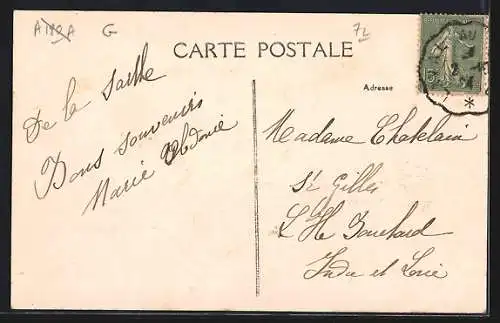 G
72
CARTE POSTALE
Adresse
De la Sarthe
Bons souvenirs
Marie
Madame Chatelain
St Gilles
L'Ile Bouchard
Indre et Loire